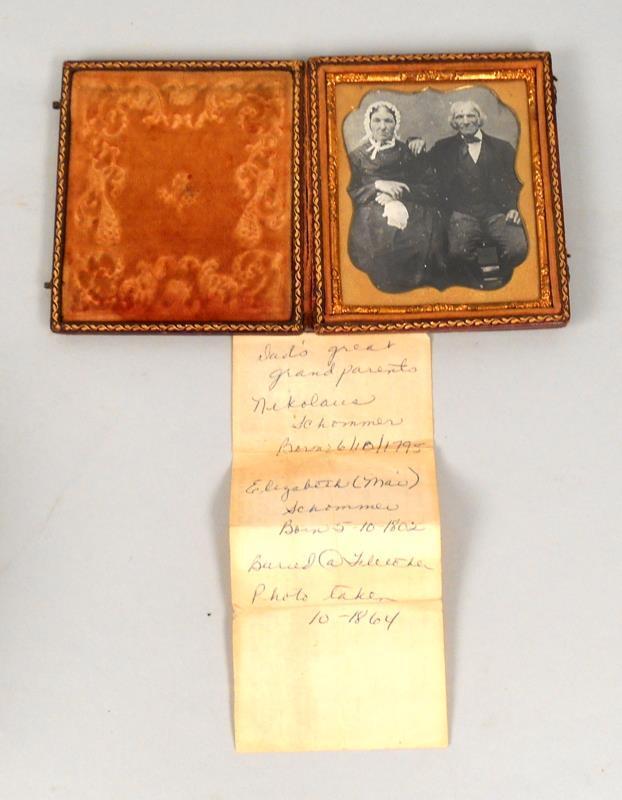 Dad's great
grand parents
Nikolaus
Schommer
Born: 6/10/1795
Elizabeth (Mai)
Schommer
Born 5-10-1802
Buried @
Photo taken
10-1864